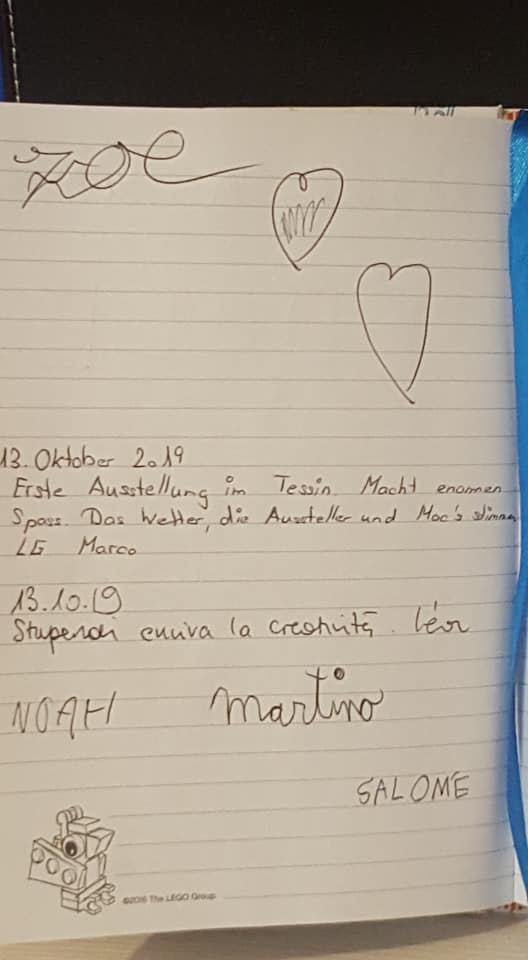 zoe
13. Oktober 2019
Erste Ausstellung im Tessin. Macht enormen
Spass. Das Wetter, die Aussteller und Moc's
LG Marco
13.10.19
Stupendi evviva la creatività.
NOAH Martino
SALOME
©2016 The LEGO Group.